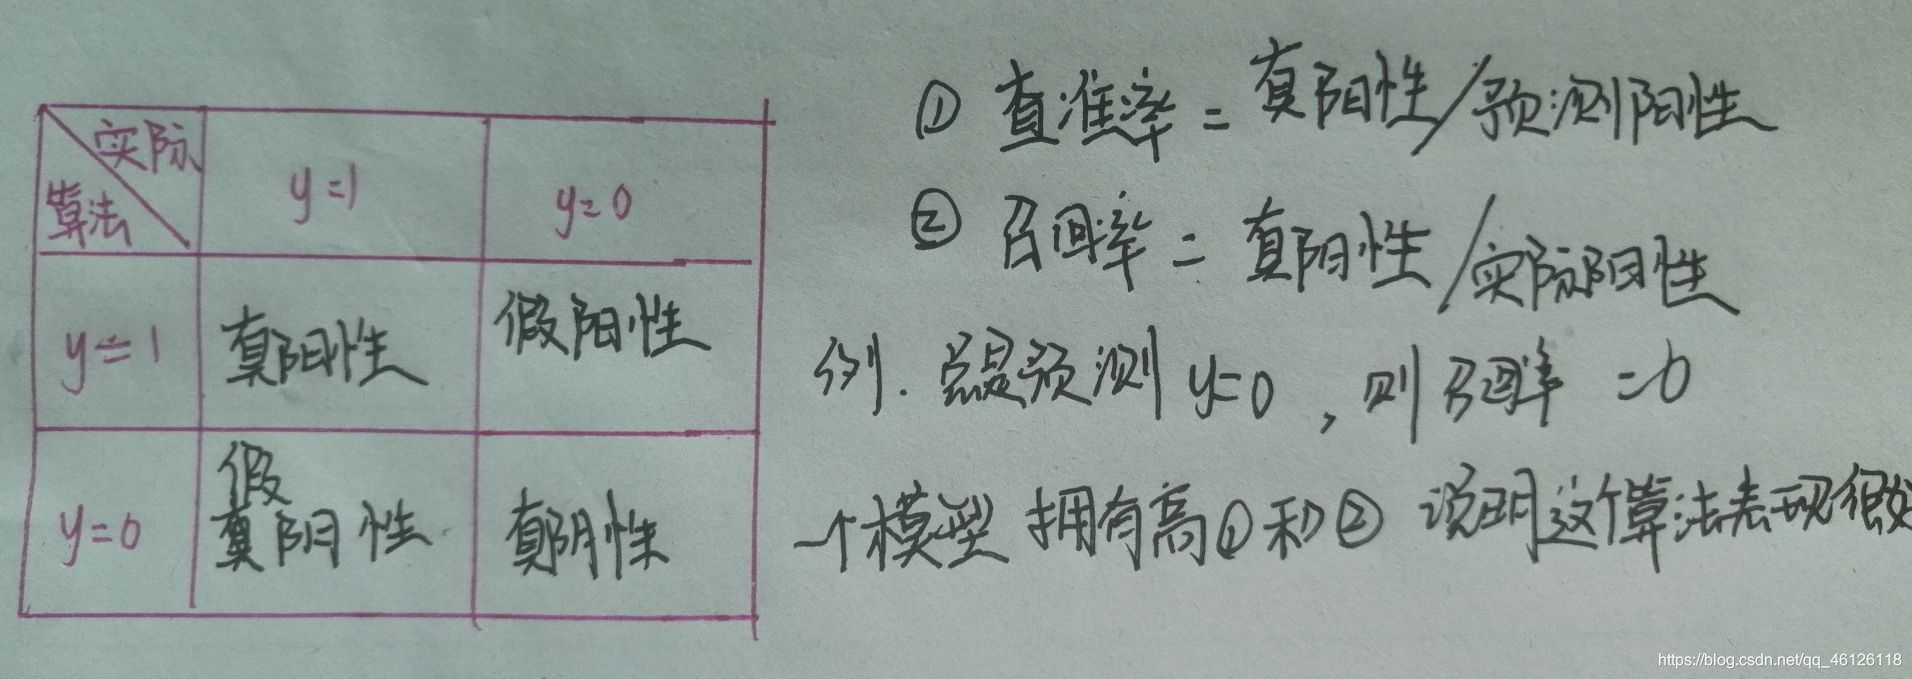 实际
算法
y=1
y=0
y=1
真阳性
假阳性
y=0
假
真阳性
真阴性
① 查准率 = 真阳性/预测阳性
② 召回率 = 真阳性/实际阳性
例. 总是预测 y=0, 则召回率 =0
一个模型 拥有高①和② 说明这个算法表现很好
https://blog.csdn.net/qq_46126118